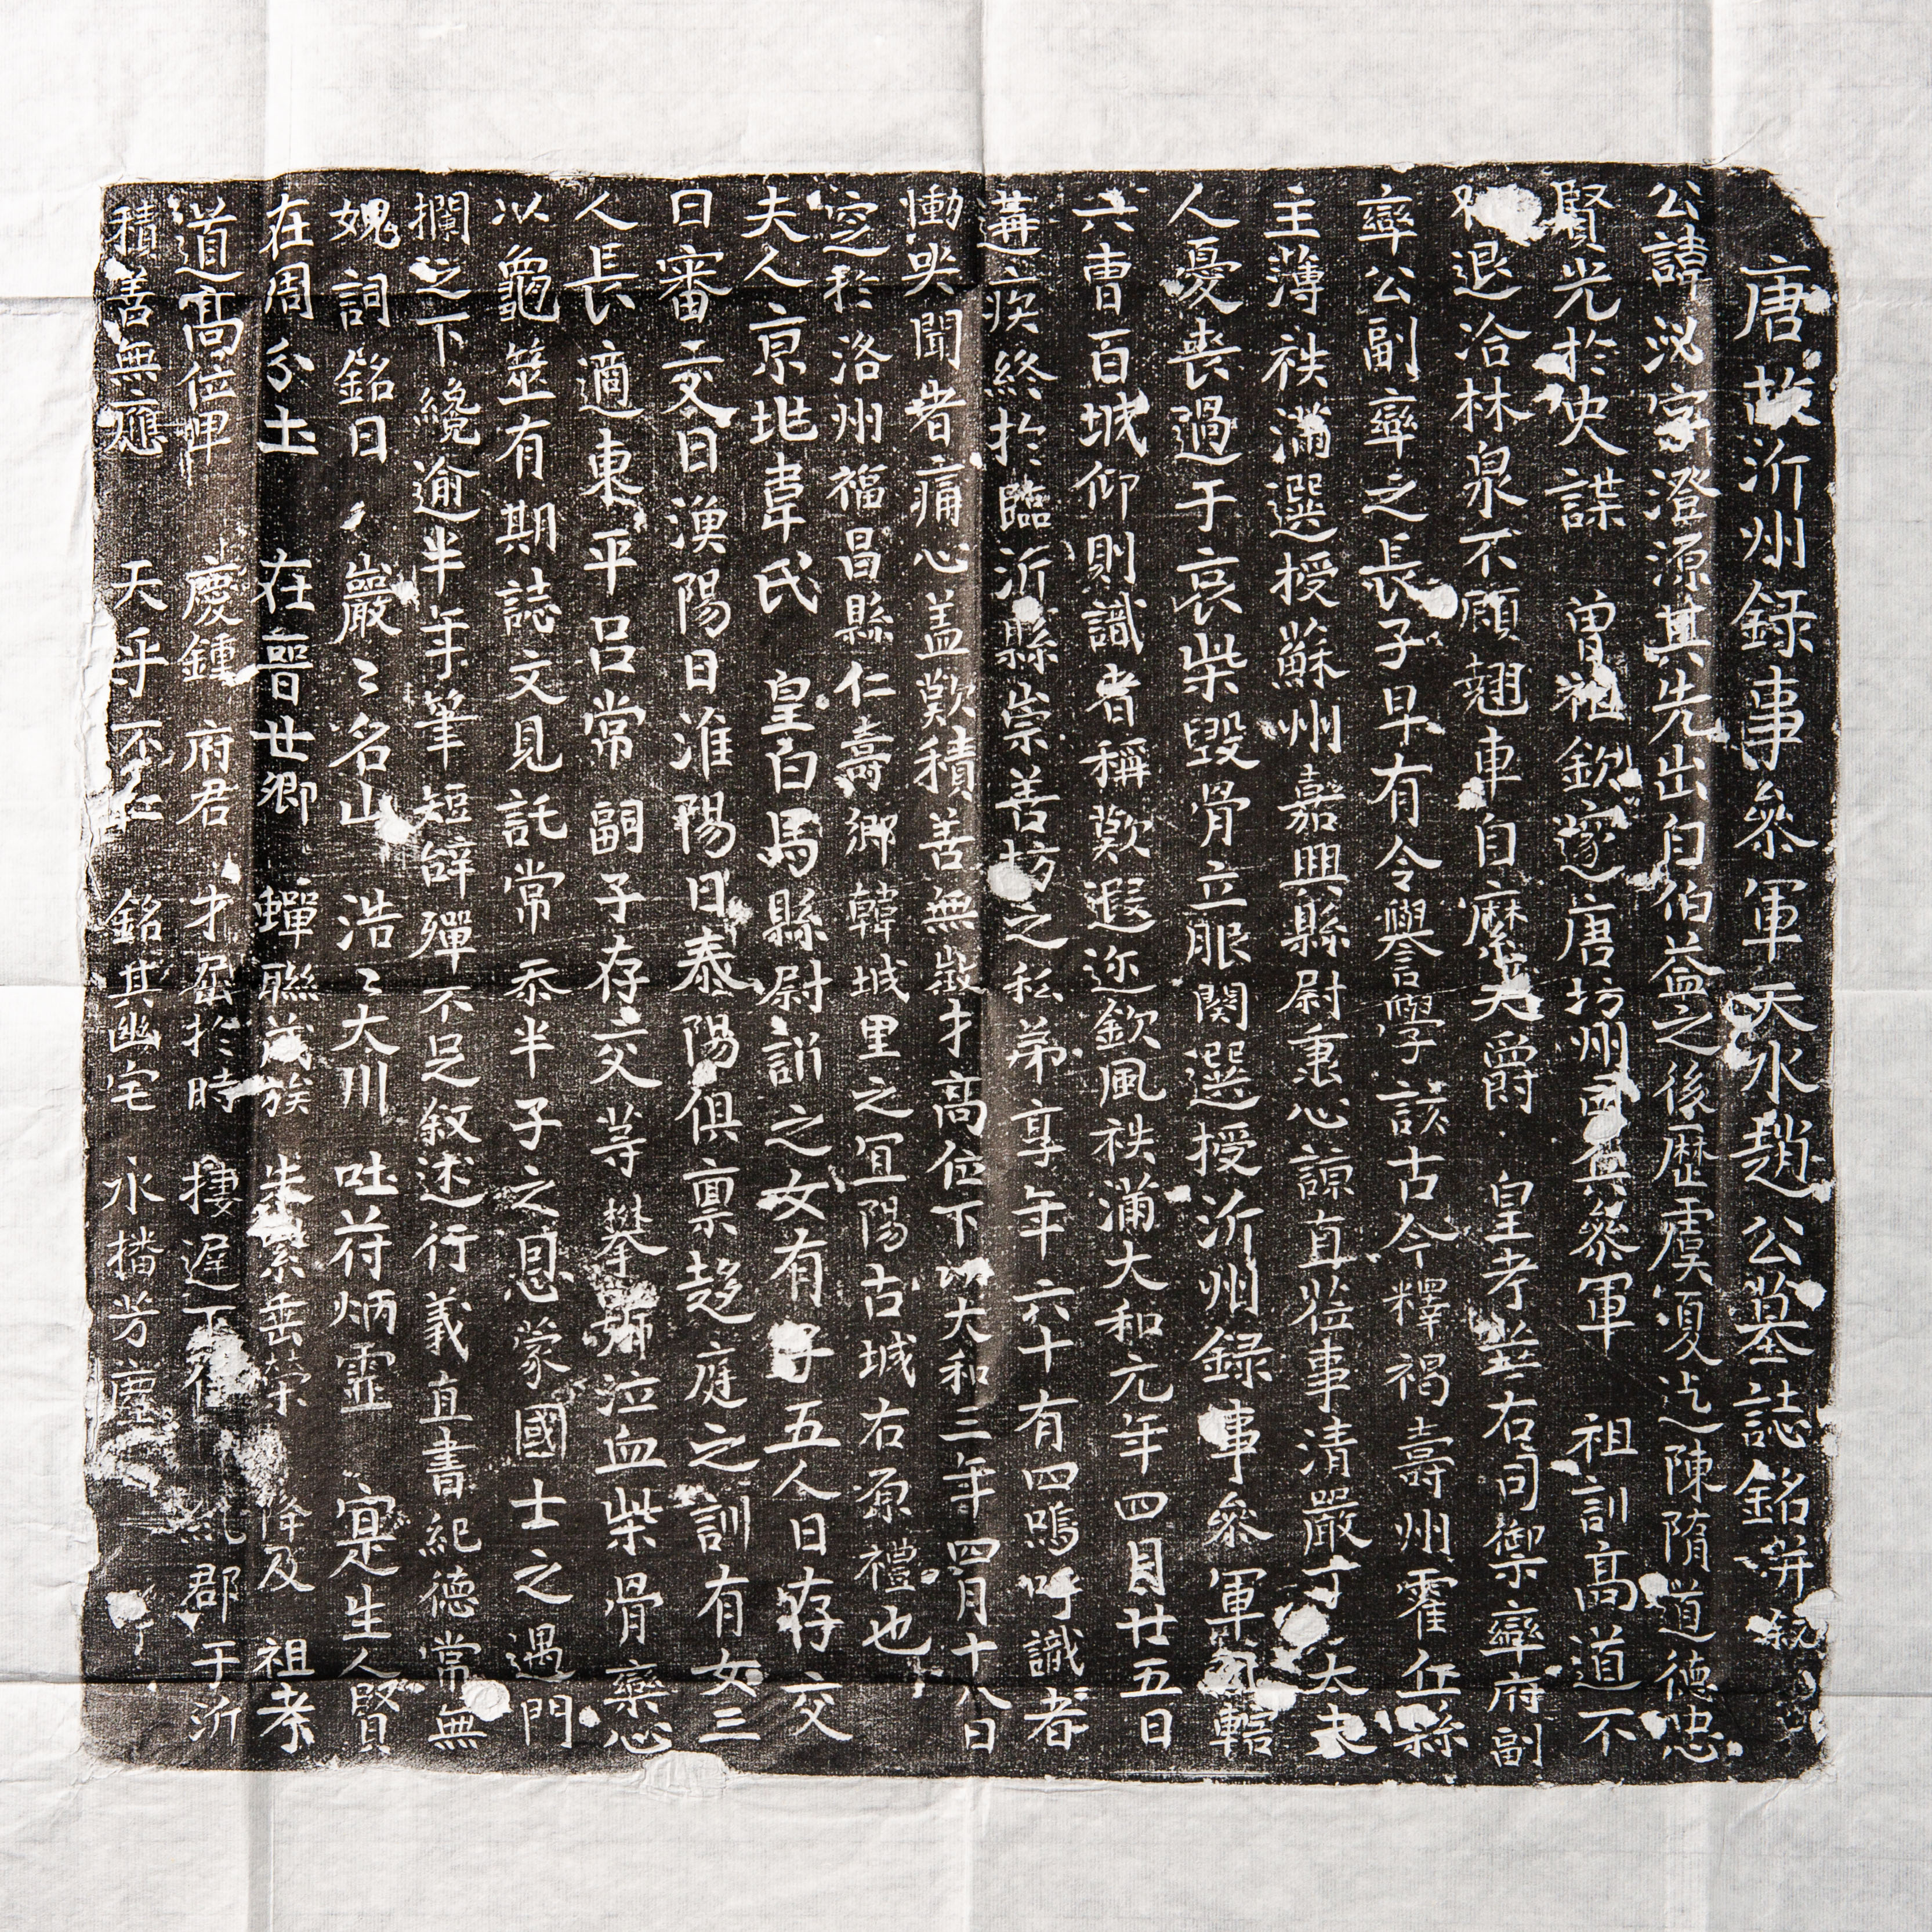 唐故沂州録事叅軍天水趙公墓誌銘并叙
公諱泌字澄源其先出自伯益之後歷虞夏迄陳隋道德忠
賢光於史諜 曽祖欽遂唐坊州兵叅軍 祖訓高道不
退洽林泉不顧翹車自縻天爵 皇考 左右司禦率府副
率公副率之長子早有令譽學該古今釋褐壽州霍丘縣
主薄祑滿選授蘇州嘉興縣尉秉心諒直莅事清嚴丁太夫
人憂喪過于哀柴毀骨立服闋選授沂州録事叅軍 轄
六曹百城仰則識者稱歎遐迩欽風祑滿大和元年四月廿五日
遘疾終於臨沂縣崇善坊之私苐享年六十有四嗚呼識者
慟哭聞者痛心盖歎積善無徵才高位下以大和三年四月十八日
窆於洛州福昌縣仁壽鄉韓城里之冝陽古城右原禮也
夫人京地韋氏 皇白馬縣尉訢之女有子五人曰存交
曰審交曰漁陽曰淮陽曰泰陽俱禀趍庭之訓有女三
人長適東平呂常 嗣子存交等攀 泣血柴骨欒心
以龜筮有期誌文見託常忝半子之恩蒙國士之遇門
攔之下纔逾半年筆短辞殫不足叙述行義直書紀德常無
媿詞銘曰 巖〻名山 浩〻大川 吐苻炳霊 寔生人賢
在周分土 在晉世卿 蟬聯茂族 朱紫垂榮 降及 祖考
道高位卑 慶鍾 府君 才屈於時 捿遲下 紀郡于沂
積善無應 天乎不仁 銘其幽宅 永播芳塵